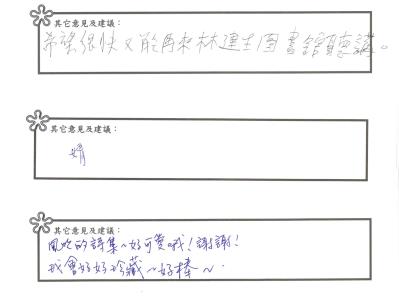 其它意見及建議：
希望很快又能再來林建生圖書館聽講。
其它意見及建議：
其它意見及建議：
的詩集~好可愛哦！謝謝！
我會好好珍藏~好棒~